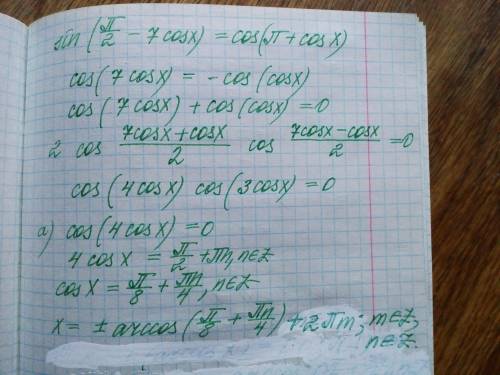 sin(π/2 − 7cosx) = cos(π + cosx)
cos(7cosx) = −cos(cosx)
cos(7cosx) + cos(cosx) = 0
2 cos (7cosx + cosx)/2 cos (7cosx − cosx)/2 = 0
cos(4cosx) cos(3cosx) = 0
а) cos(4cosx) = 0
4cosx = π/2 + πn, n∈Z
cosx = π/8 + πn/4, n∈Z
x = ± arccos(π/8 + πn/4) + 2πm; m∈Z,
n∈Z.